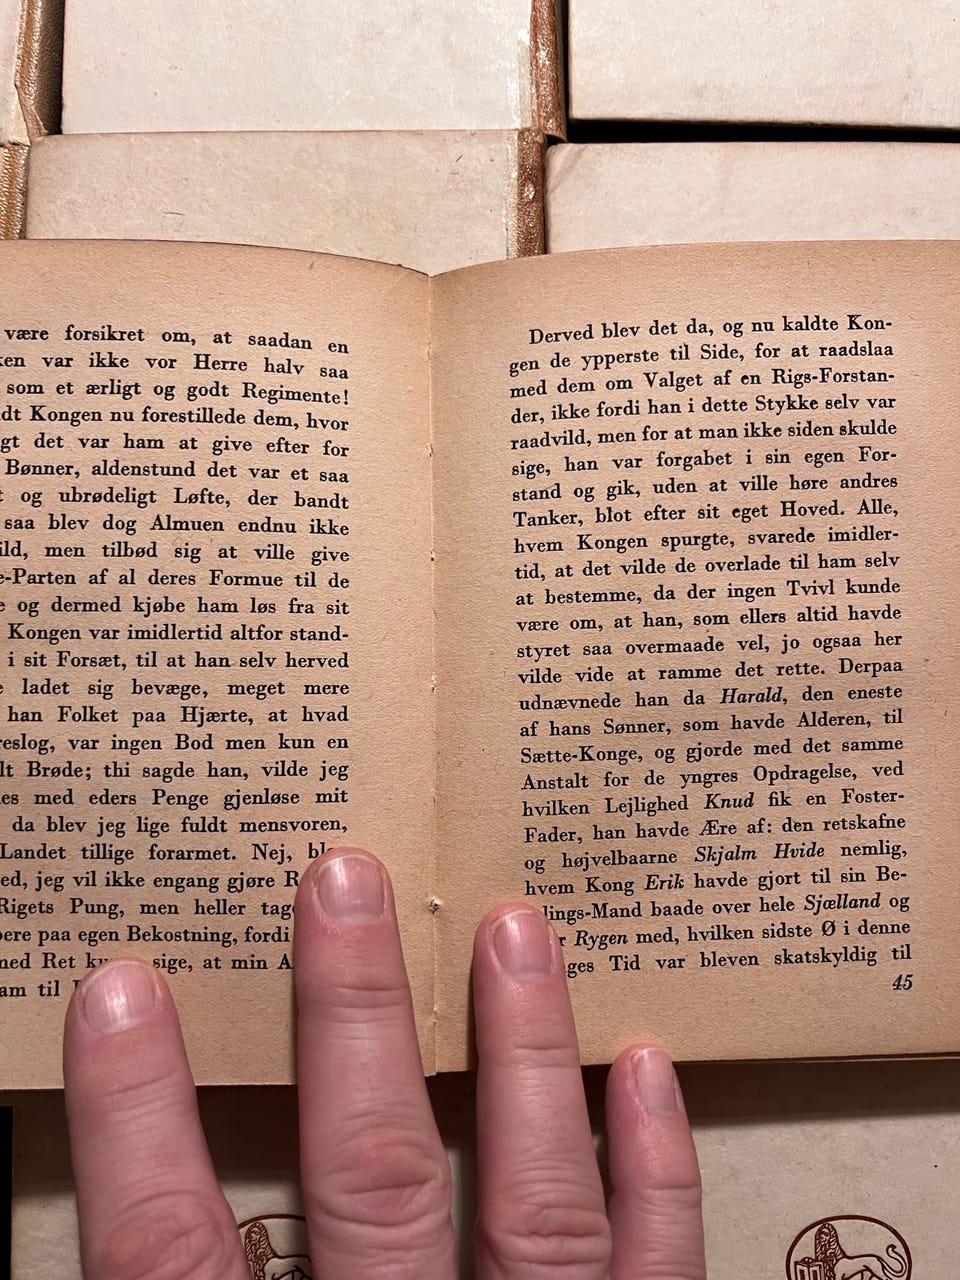 være forsikret om, at saadan en
var ikke vor Herre halv saa
som et ærligt og godt Regimente!
Kongen nu forestillede dem, hvor
det var ham at give efter for
Bønner, aldenstund det var et saa
og ubrødeligt Løfte, der bandt
saa blev dog Almuen endnu ikke
men tilbød sig at ville give
Parten af al deres Formue til de
og dermed kjøbe ham løs fra sit
Kongen var imidlertid altfor stand-
i sit Forsæt, til at han selv herved
ladet sig bevæge, meget mere
han Folket paa Hjærte, at hvad
var ingen Bod men kun en
Brøde; thi sagde han, vilde jeg
med eders Penge gjenløse mit
da blev jeg lige fuldt mensvoren,
Landet tillige forarmet. Nej,
jeg vil ikke engang gjøre
Rigets Pung, men heller
paa egen Bekostning, fordi
Ret sige, at min
til
Derved blev det da, og nu kaldte Kon-
gen de ypperste til Side, for at raadslaa
med dem om Valget af en Rigs-Forstan-
der, ikke fordi han i dette Stykke selv var
raadvild, men for at man ikke siden skulde
sige, han var forgabet i sin egen For-
stand og gik, uden at ville høre andres
Tanker, blot efter sit eget Hoved. Alle,
hvem Kongen spurgte, svarede imidler-
tid, at det vilde de overlade til ham selv
at bestemme, da der ingen Tvivl kunde
være om, at han, som ellers altid havde
styret saa overmaade vel, jo ogsaa her
vilde vide at ramme det rette. Derpaa
udnævnede han da Harald, den eneste
af hans Sønner, som havde Alderen, til
Sætte-Konge, og gjorde med det samme
Anstalt for de yngres Opdragelse, ved
hvilken Lejlighed Knud fik en Foster-
Fader, han havde Ære af: den retskafne
og højvelbaarne Skjalm Hvide nemlig,
hvem Kong Erik havde gjort til sin Be-
lings-Mand baade over hele Sjælland og
Rygen med, hvilken sidste Ø i denne
Tid var bleven skatskyldig til
45